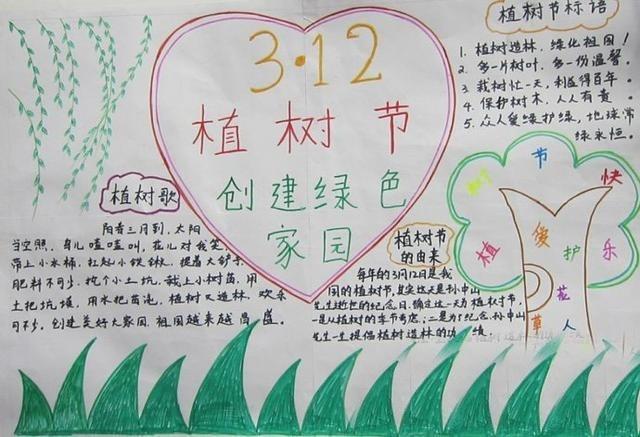 3·12
植树节
创建绿色
家园
植树节标语
1. 植树造林，绿化祖国！
2. 多一片树叶，多一份温馨。
3. 栽树忙一天，利益得百年。
4. 保护树木，人人有责。
5. 众人爱绿护绿，地球常
绿永恒。
植树歌
阳春三月到，太阳
当空照，鸟儿喳喳叫，花儿对我笑，
带上小水桶，扛起小铁锹，提着大铲子，
肥料不可少，挖个小土坑，栽上小树苗，用
土把坑埋，用水把苗浇，植树又造林，欢乐
可不少，创建美好大家园，祖国越来越昌盛。
植树节
的由来
每年的3月12日是我
国的植树节，其实这天是孙中山
先生逝世的纪念日，确定这一天为植树节，
一是从植树的季节考虑；二是为了纪念孙中山
先生一生提倡植树造林的功绩
植树节快乐
爱护花草人人